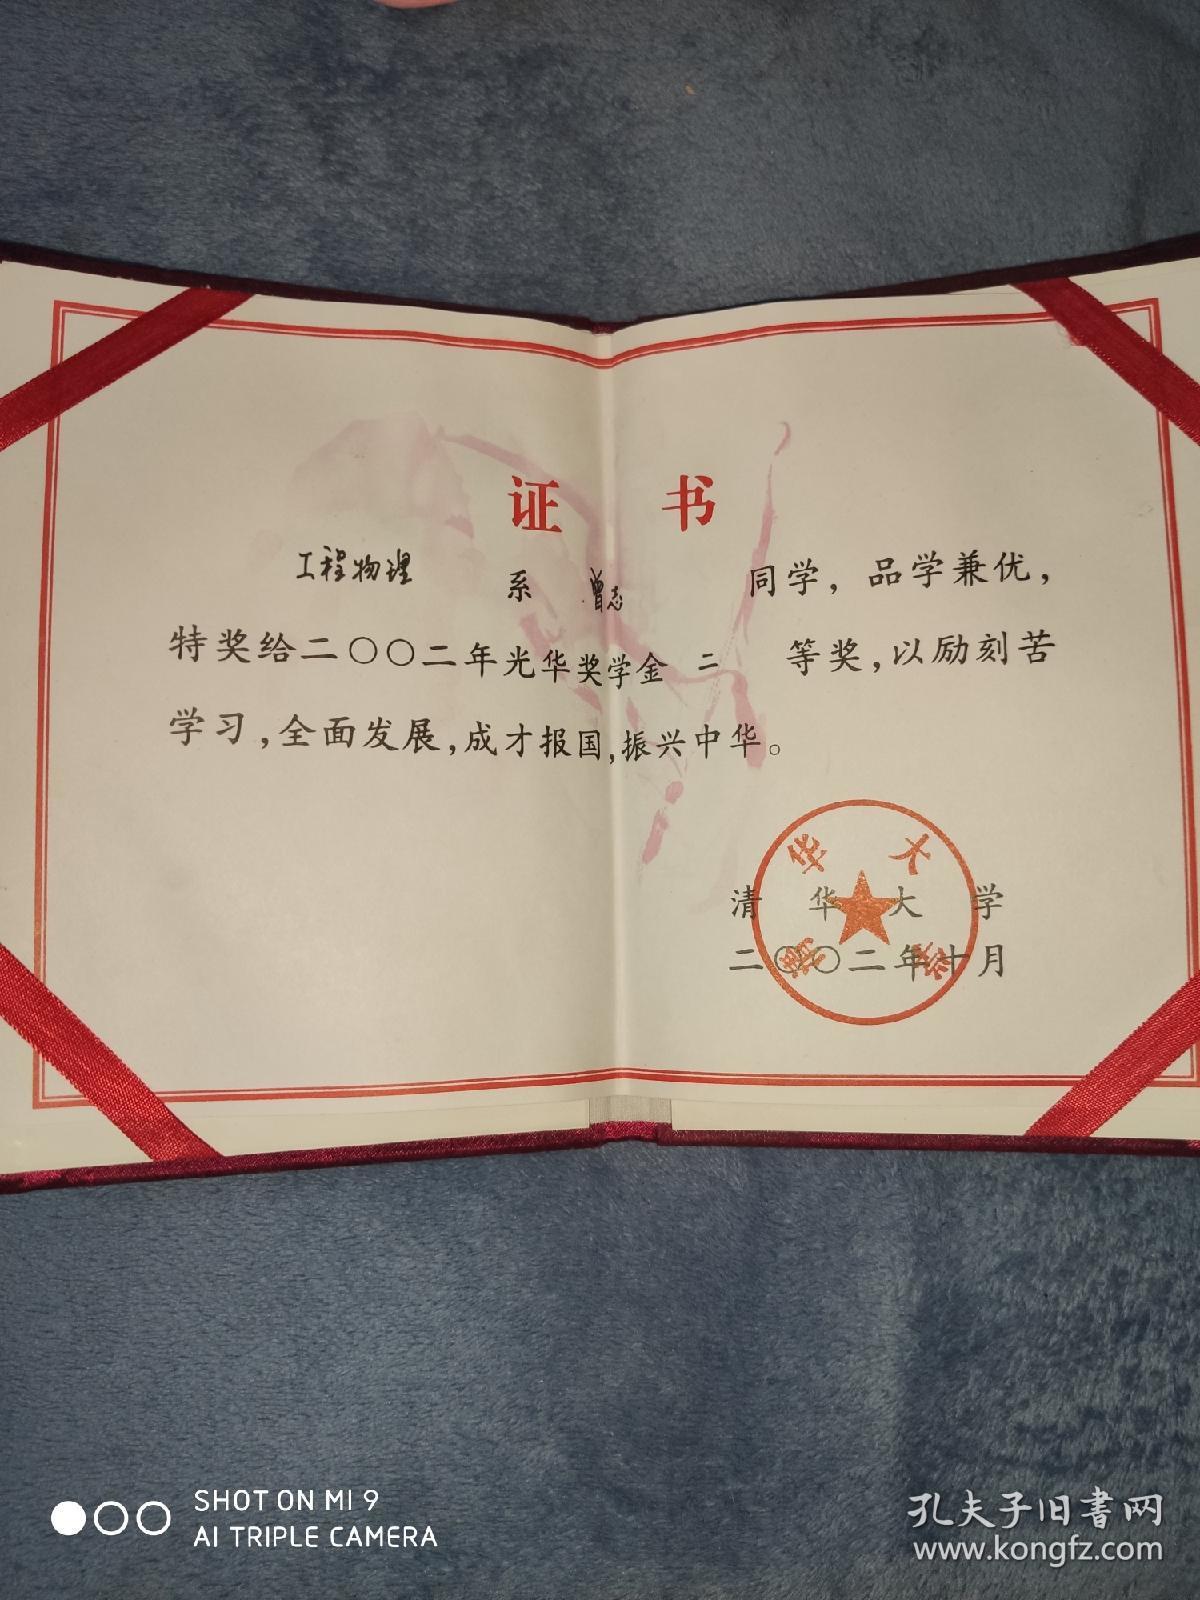 证 书
工程物理 系 曾志 同学，品学兼优，
特奖给二〇〇二年光华奖学金 二 等奖，以励刻苦
学习，全面发展，成才报国，振兴中华。
清华大学
清 华 大 学
二〇〇二年十月
SHOT ON MI 9
AI TRIPLE CAMERA
孔夫子旧书网
www.kongfz.com